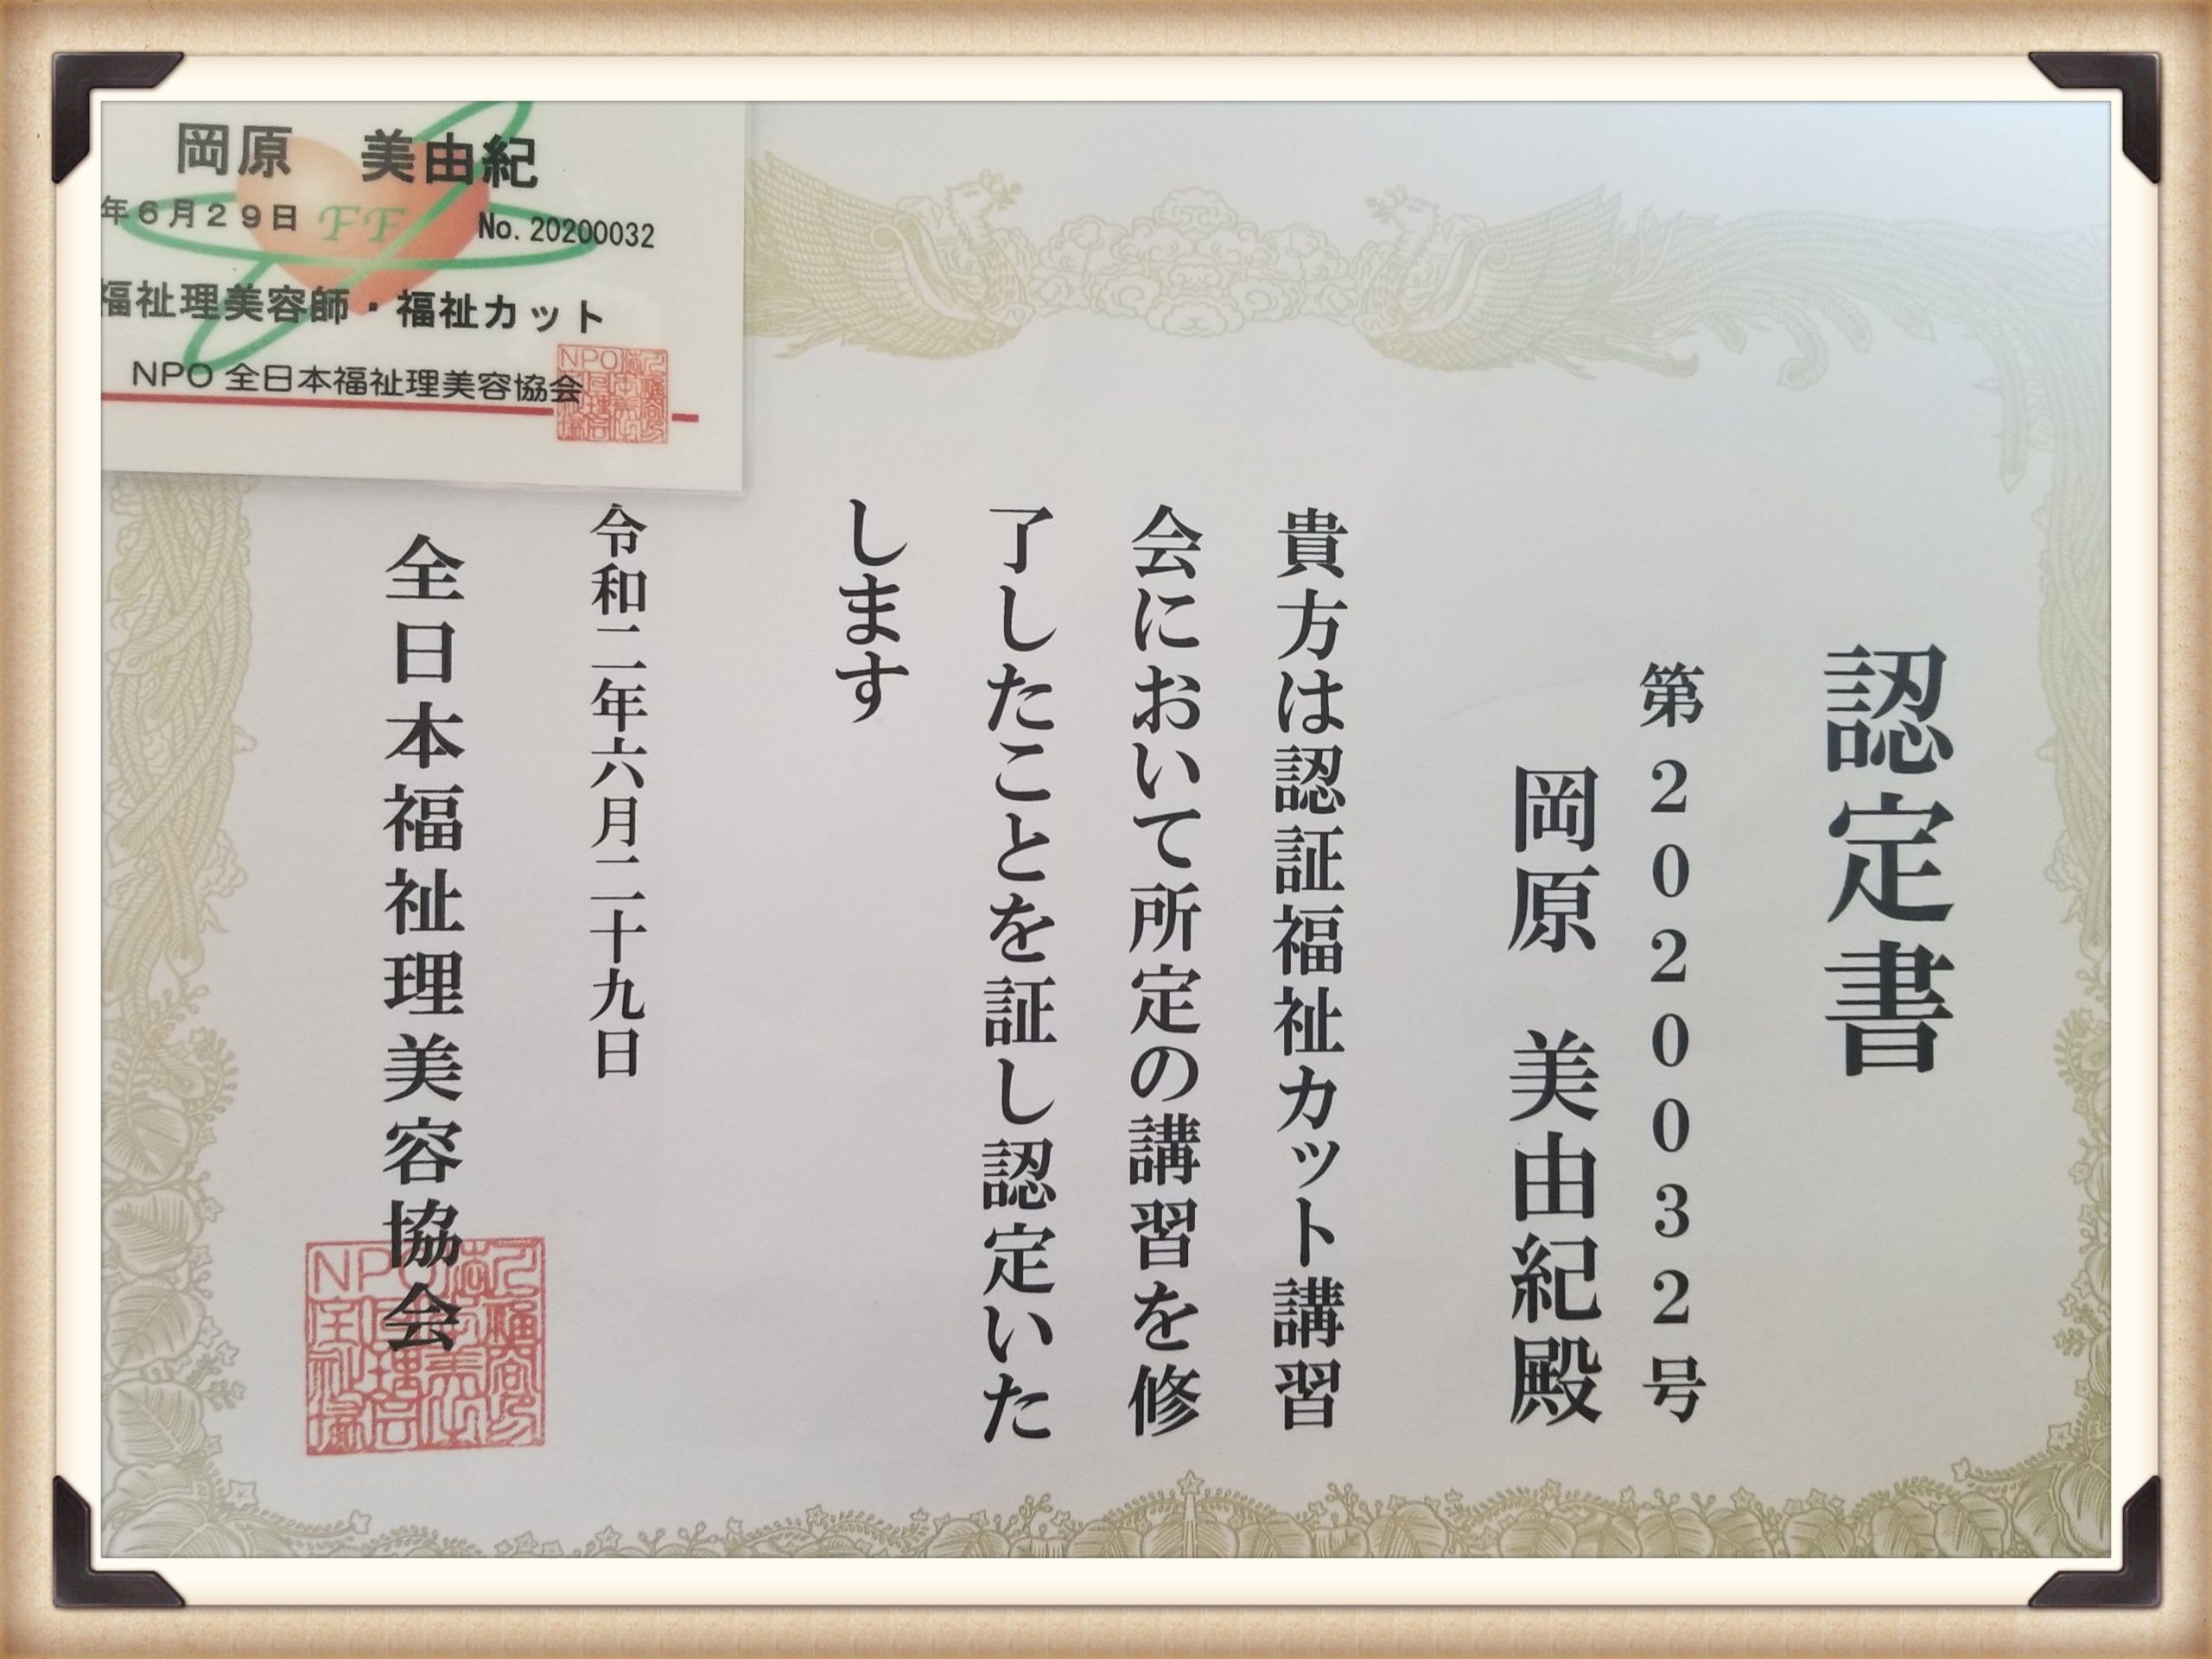 認定書
第20200032号
岡原 美由紀殿
貴方は認証福祉カット講習
会において所定の講習を修
了したことを証し認定いた
します
令和二年六月二十九日
全日本福祉理美容協会
岡原 美由紀
年6月29日 FF No.20200032
福祉理美容師・福祉カット
NPO 全日本福祉理美容協会